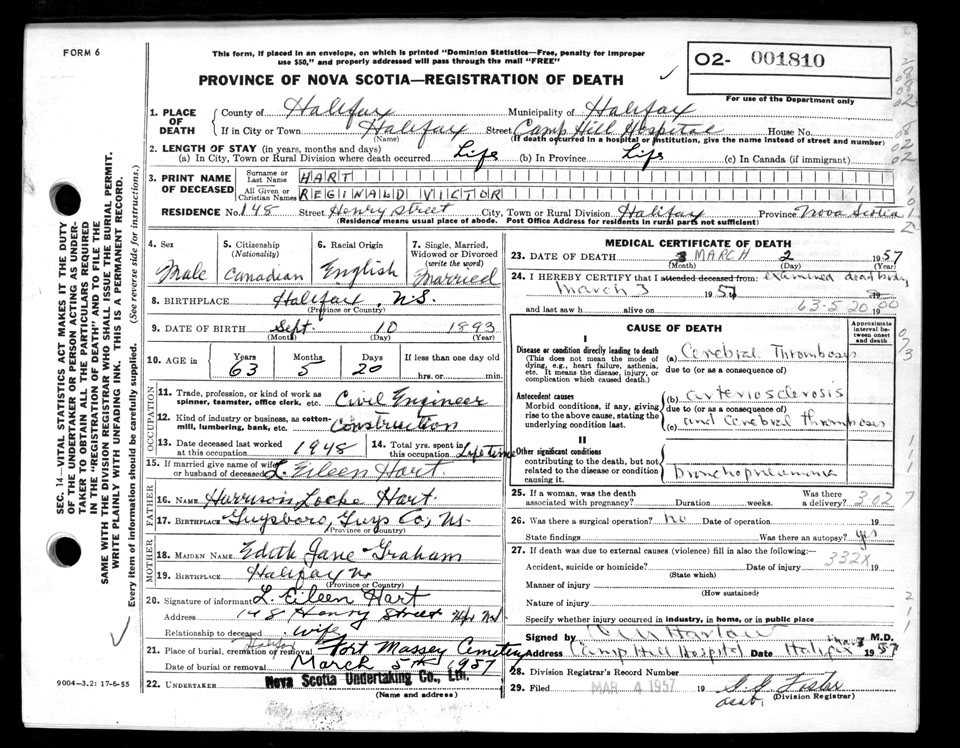 FORM 6
This form, if placed in an envelope, on which is printed "Dominion Statistics—Free, penalty for improper
use $50," and properly addressed will pass through the mail "FREE"
PROVINCE OF NOVA SCOTIA—REGISTRATION OF DEATH
02- 001810
For use of the Department only
SEC. 14—VITAL STATISTICS ACT MAKES IT THE DUTY
OF THE UNDERTAKER OR PERSON ACTING AS UNDER-
TAKER TO OBTAIN ALL THE PARTICULARS REQUIRED
IN THE "REGISTRATION OF DEATH" AND TO FILE THE
SAME WITH THE DIVISION REGISTRAR WHO SHALL ISSUE THE BURIAL PERMIT.
WRITE PLAINLY WITH UNFADING INK. THIS IS A PERMANENT RECORD.
Every item of information should be carefully supplied. (See reverse side for instructions.)
1. PLACE OF DEATH
County of Halifax Municipality of Halifax
If in City or Town Halifax Street Camp Hill Hospital House No.
(Name) (If death occurred in a hospital or institution, give the name instead of street and number)
2. LENGTH OF STAY (in years, months and days)
(a) In City, Town or Rural Division where death occurred Life (b) In Province Life (c) In Canada (if immigrant)
3. PRINT NAME OF DECEASED
Surname or Last Name HART
All Given or Christian Names REGINALD VICTOR
RESIDENCE No. 148 Street Henry Street City, Town or Rural Division Halifax Province Nova Scotia
(Residence means usual place of abode. Post Office Address for residents in rural parts not sufficient)
4. Sex Male
5. Citizenship (Nationality) Canadian
6. Racial Origin English
7. Single, Married, Widowed or Divorced (write the word) Married
8. BIRTHPLACE Halifax, N.S.
(Province or Country)
9. DATE OF BIRTH Sept. 10 1893
(Month) (Day) (Year)
10. AGE in Years 63 Months 5 Days 20 If less than one day old
hrs. or min.
OCCUPATION
11. Trade, profession, or kind of work as spinner, teamster, office clerk, etc. Civil Engineer
12. Kind of industry or business, as cotton-mill, lumbering, bank, etc. Construction
13. Date deceased last worked at this occupation 1948
14. Total yrs. spent in this occupation Lifetime
15. If married give name of wife or husband of deceased L. Eileen Hart
FATHER
16. NAME Harrison Locke Hart.
17. BIRTHPLACE Guysboro, Guys Co, NS.
(Province or Country)
MOTHER
18. MAIDEN NAME Edith Jane Graham
19. BIRTHPLACE Halifax
(Province or Country)
20. Signature of informant L. Eileen Hart
Address 148 Henry Street Hfx NS
Relationship to deceased wife
21. Place of burial, cremation or removal Halifax Fort Massey Cemetery
Date of burial or removal March 5th 1957
22. UNDERTAKER Nova Scotia Undertaking Co., Ltd.
(Name and address)
9004-3.2: 17-6-55
MEDICAL CERTIFICATE OF DEATH
23. DATE OF DEATH MARCH 2 1957
(Month) (Day) (Year)
24. I HEREBY CERTIFY that I attended deceased from: examined dead body
March 3 1957
and last saw h alive on 19
63-5-20 00
CAUSE OF DEATH
Approximate interval between onset and death
I
Disease or condition directly leading to death
(This does not mean the mode of dying, e.g., heart failure, asthenia, etc. It means the disease, injury, or complication which caused death.)
(a) Cerebral Thrombosis
due to (or as a consequence of)
Antecedent causes
Morbid conditions, if any, giving rise to the above cause, stating the underlying condition last.
(b) arteriosclerosis
due to (or as a consequence of)
(c) and Cerebral thrombosis
II
Other significant conditions
contributing to the death, but not related to the disease or condition causing it.
Bronchopneumonia
25. If a woman, was the death associated with pregnancy? Duration weeks. Was there a delivery?
3027
26. Was there a surgical operation? no Date of operation 19
State findings Was there an autopsy? yes
27. If death was due to external causes (violence) fill in also the following:—
332X
Accident, suicide or homicide? Date of injury 19
(State which)
Manner of injury
(How sustained)
Nature of injury
Specify whether injury occurred in industry, in home, or in public place
Signed by Harlow M.D.
Address Camp Hill Hospital Halifax Date Mar 3 1957
28. Division Registrar's Record Number
29. Filed MAR 4 1957 19 Foster
(Division Registrar)